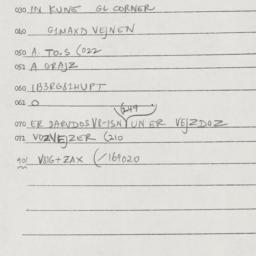 030 IN KUNE GL CORNER
040 GIMAXD VEJNEN
050 A. TO.S (022
052 A GRAJZ
060 1B3RG81HUPT
061 O
(249
070 ER DARUDOSV8-ISN UN ER VEJZDOZ
072 VOZVEJZER (210
90/ V8G+ZAX (/169020